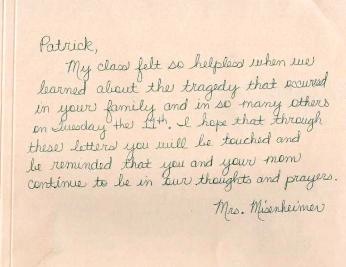 Patrick,
My class felt so helpless when we
learned about the tragedy that occured
in your family and in so many others
on Tuesday the 11th. I hope that through
these letters you will be touched and
be reminded that you and your mom
continue to be in our thoughts and prayers.
Mrs. Misenheimer